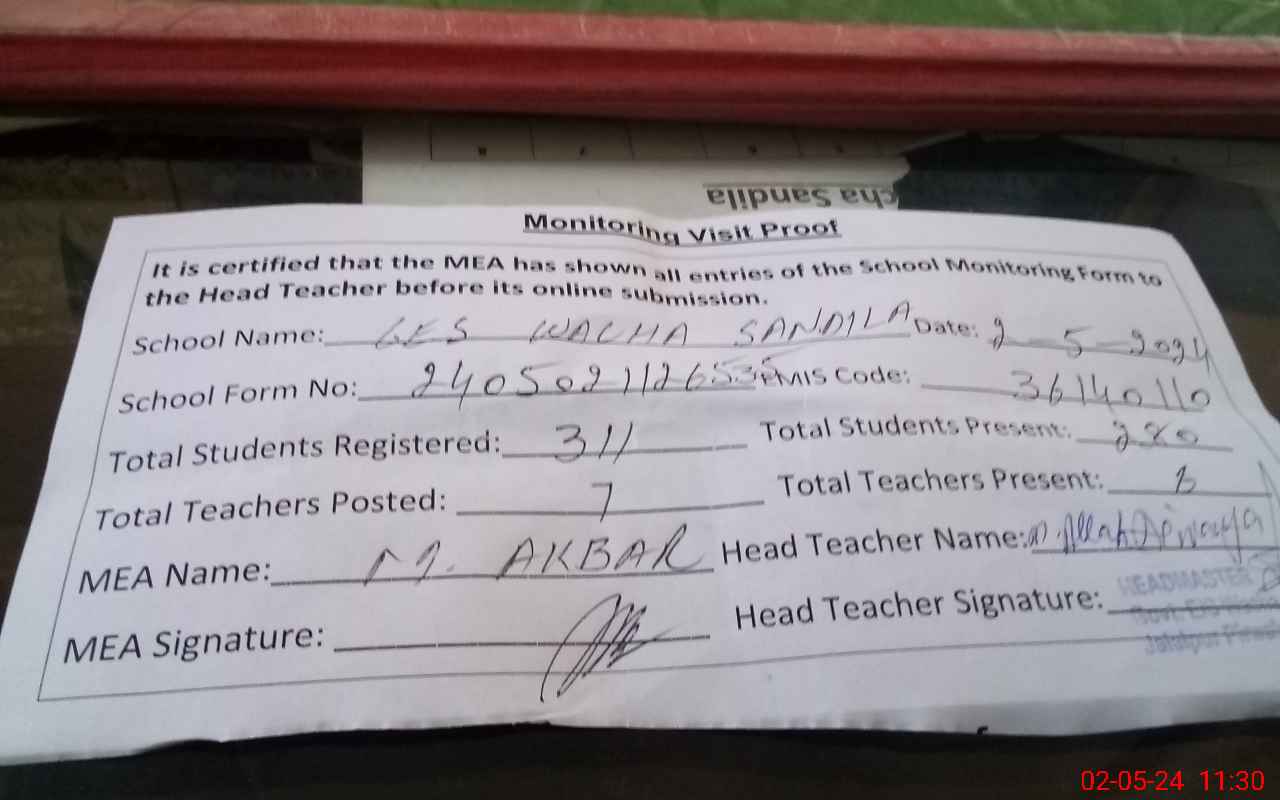 cha Sandila
Monitoring Visit Proof
It is certified that the MEA has shown all entries of the School Monitoring Form to
the Head Teacher before its online submission.
School Name: GES WACHA SANDILA Date: 2-5-2024
School Form No: EMIS Code: 36140110
Total Students Registered: 311 Total Students Present: 280
Total Teachers Posted: 7 Total Teachers Present:
MEA Name: M. AKBAR Head Teacher Name: M. Allah
MEA Signature: Head Teacher Signature:
HEADMASTER
Govt. E/S
Jalalpur Pirwala
02-05-24 11:30